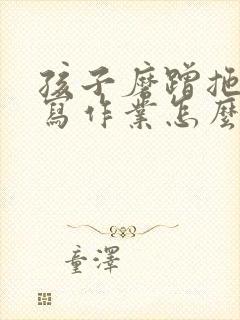 孩子磨蹭拖
寫作業怎麼
童澤